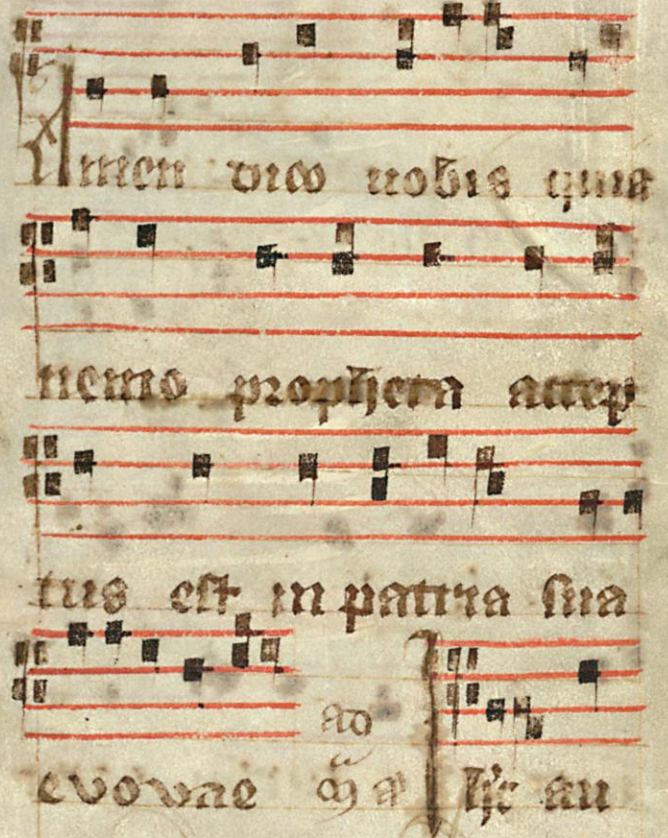 Amen dico nobis quia
nemo propheta accep
tus est in patria sua
evovae ad Ihc au